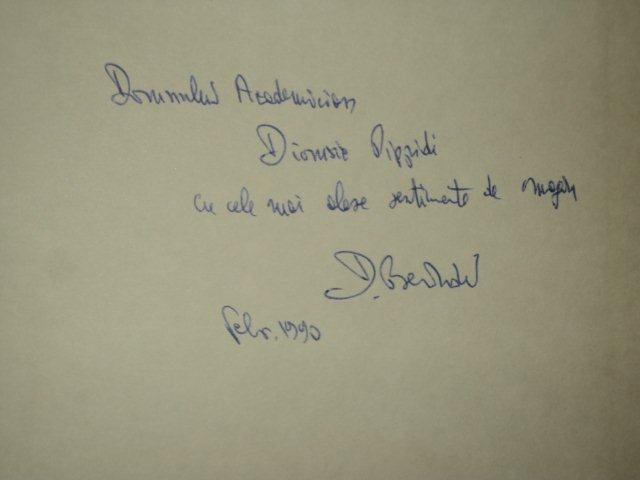 Domnului Academician
Dionisie Pippidi
cu cele mai alese sentimente de
D.
febr. 1990